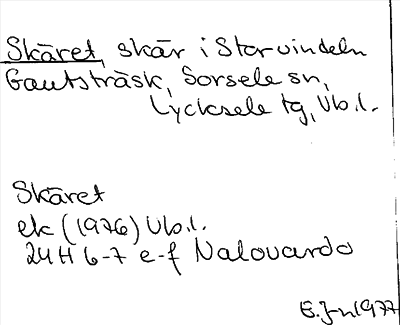 Skäret, skär i Storvindeln
Gautsträsk, Sorsele sn,
Lycksele tg, Vb.l.
Skäret
ek (1976) Vb.l.
24H 6-7 e-f Nalovardo
E.J-n 1977